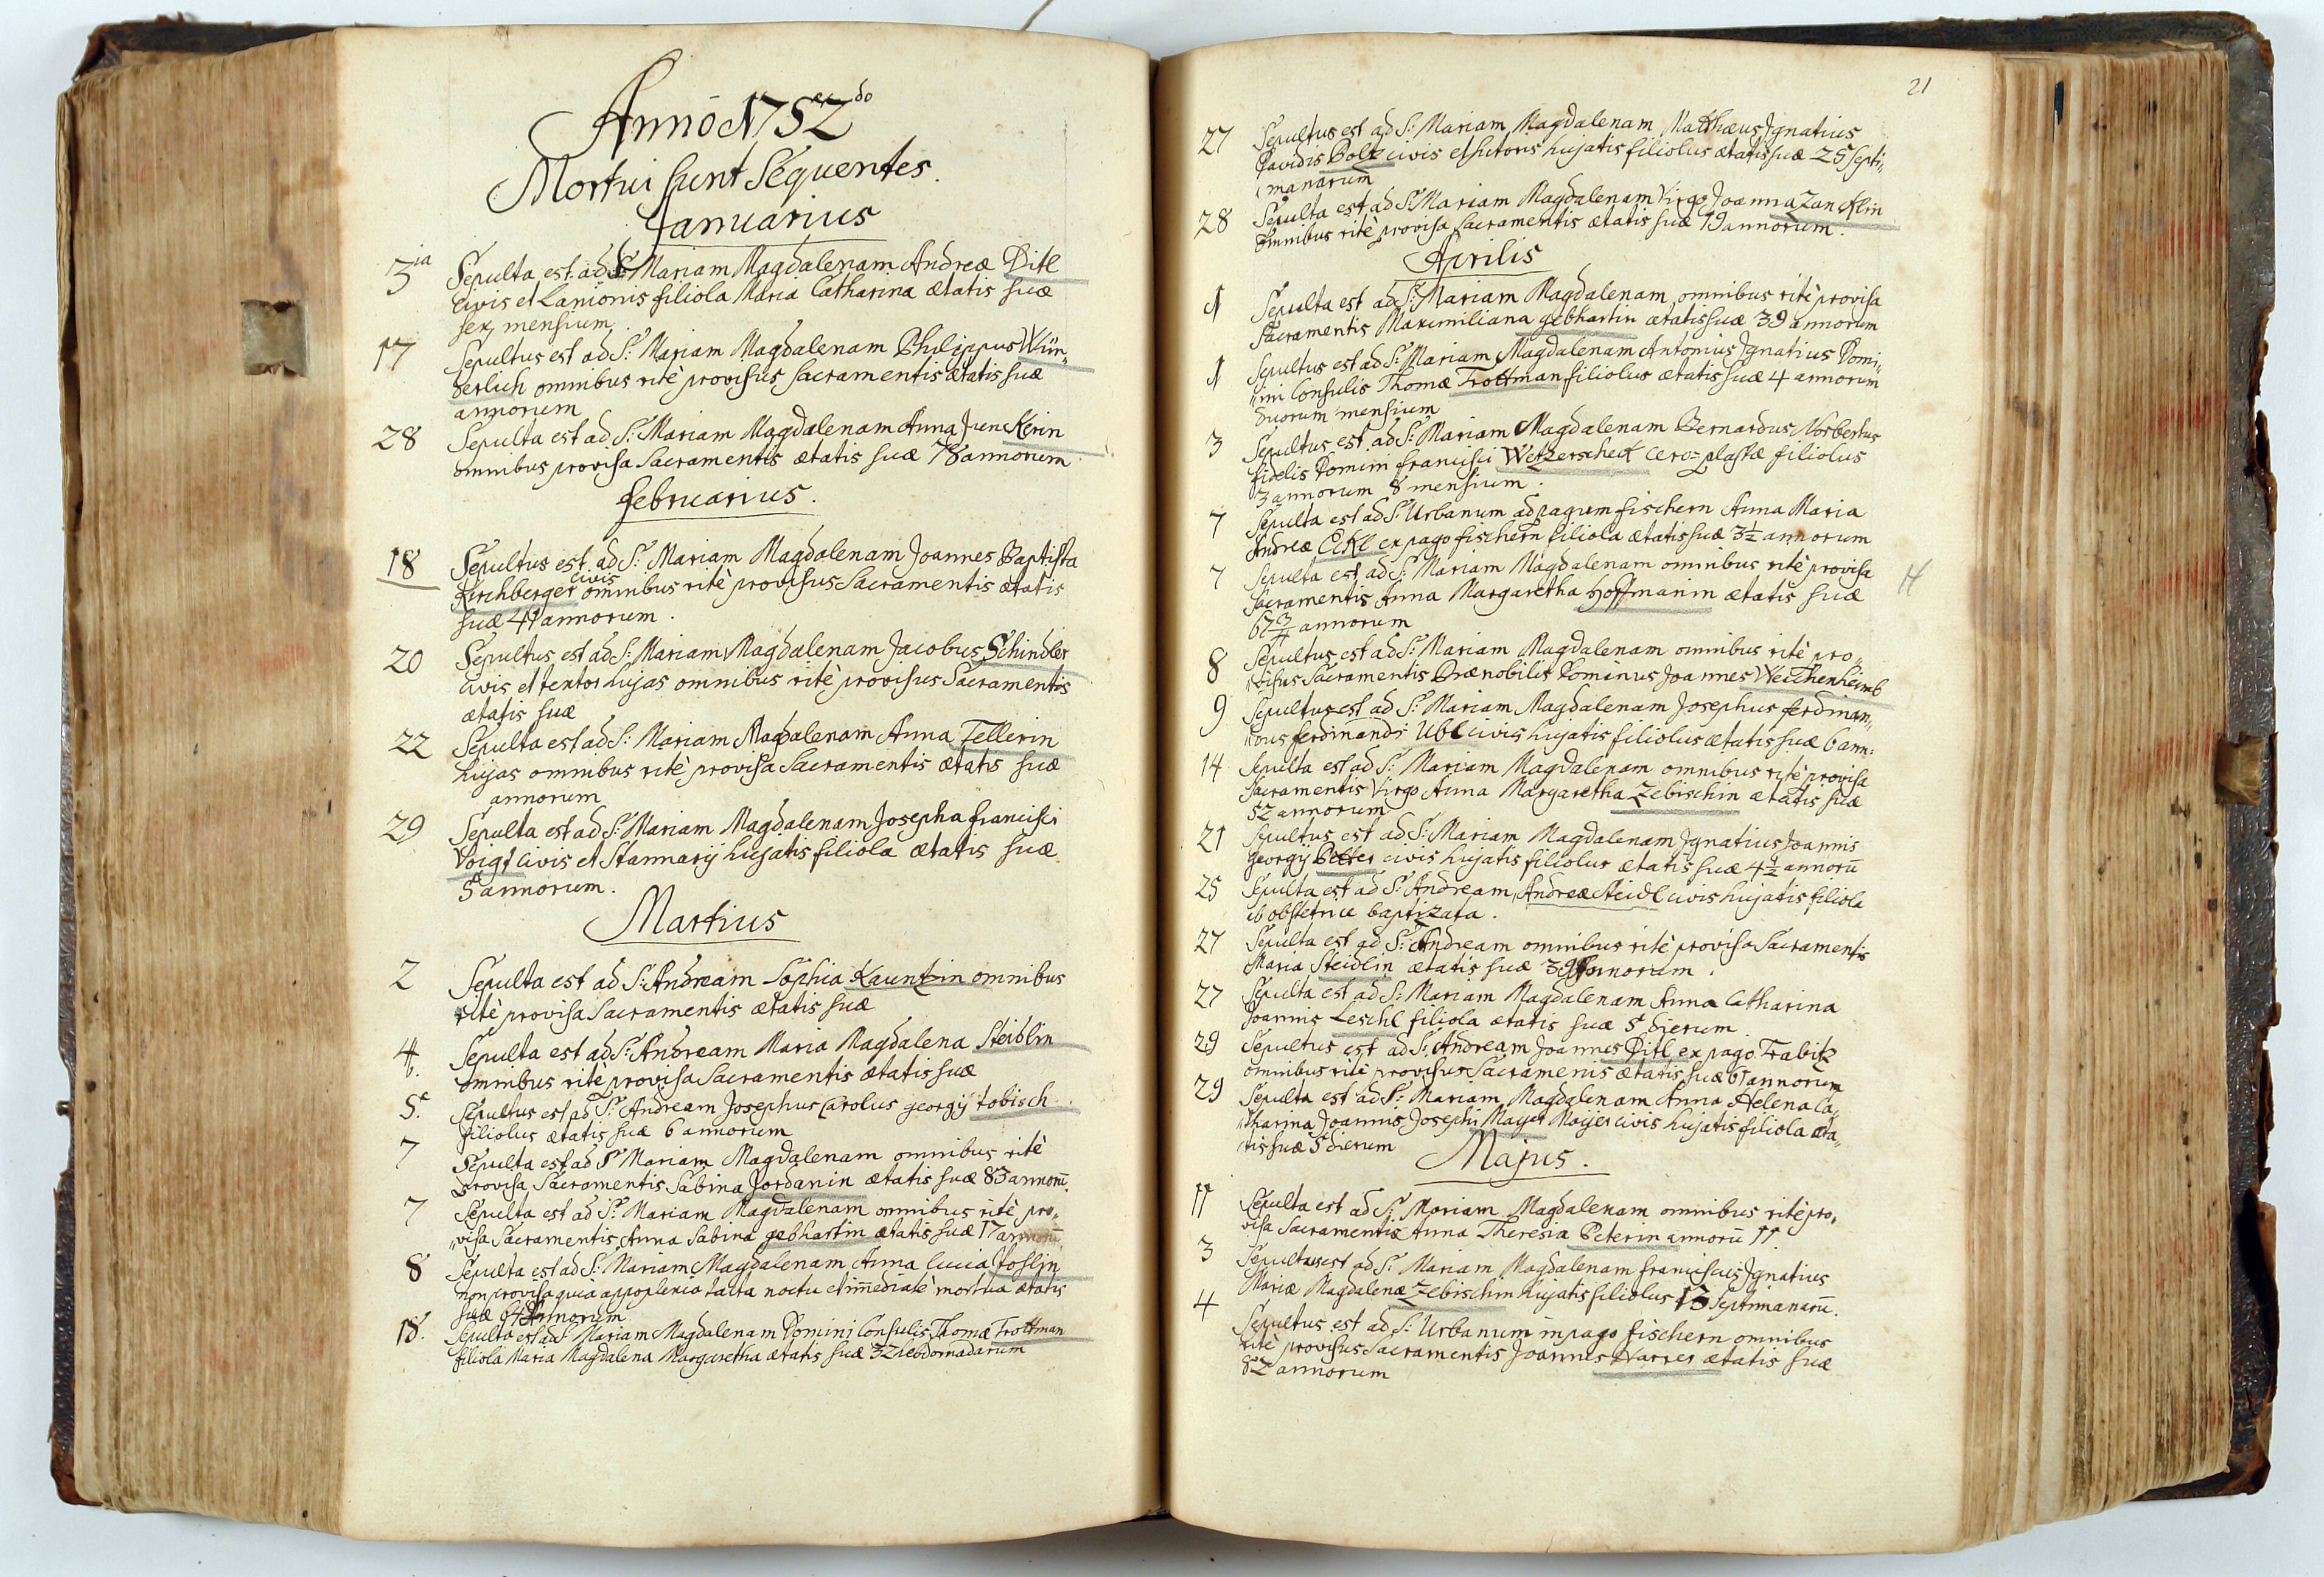 Anno 1752do
Mortui sunt Sequentes.
Januarius
3ia Sepulta est ad S: Mariam Magdalenam Andreæ Ditl
Civis et Lanionis filiola Maria Catharina ætatis suæ
sex mensium.
17 Sepultus est ad S: Mariam Magdalenam Philippus Wün„
derlich omnibus ritè provisus Sacramentis ætatis suæ
annorum
28 Sepulta est ad S: Mariam Magdalenam Anna Junckerin
omnibus provisa Sacramentis ætatis suæ 78 annorum
februarius.
18 Sepultus est ad S: Mariam Magdalenam Joannes Baptista
Kirchberger civis omnibus ritè provisus Sacramentis ætatis
suæ 41 annorum.
20 Sepultus est ad S: Mariam Magdalenam Jacobus Schindler
civis et textor hujas omnibus ritè provisus Sacramentis
ætatis suæ
22 Sepulta est ad S: Mariam Magdalenam Anna Fellerin
hujas omnibus ritè provisa Sacramentis ætatis suæ
annorum
29 Sepulta est ad S: Mariam Magdalenam Josepha francisci
Voigt civis et Stannarij hujatis filiola ætatis suæ
5 annorum.
Martius
2 Sepulta est ad S: Andream Sophia Kauntzin omnibus
ritè provisa Sacramentis ætatis suæ
4. Sepulta est ad S: Andream Maria Magdalena Steidlin
omnibus ritè provisa Sacramentis ætatis suæ
5. Sepultus est ad S: Andream Josephus Carolus georgij tobisch
filiolus ætatis suæ 6 annorum
7 Sepulta est ad S: Mariam Magdalenam omnibus ritè
provisa Sacramentis Sabina Jordanin ætatis suæ 83 annorū.
7 Sepulta est ad S: Mariam Magdalenam omnibus ritè pro„
„visa Sacramentis Anna Sabina gebhartin ætatis suæ 17 annorū
8 Sepulta est ad S: Mariam Magdalenam Anna Lucia Joslin
non provisa quia appoplexia tacta noctu et im̄ediatè mortua ætatis
suæ 64 Annorum
18. Sepulta est ad S: Mariam Magdalenam Domini Consulis Thomæ Trottman
filiola Maria Magdalena Margaretha ætatis suæ 32 hebdomadarum
21
27 Sepultus est ad S: Mariam Magdalenam Matthæus Ignatius
Davidis Bolz civis et sutoris hujatis filiolus ætatis suæ 25 septi„
manarum
28 Sepulta est ad S: Mariam Magdalenam Virgo Joanna Zancklin
omnibus ritè provisa Sacramentis ætatis suæ 19 annorum.
Aprilis
1 Sepulta est ad S: Mariam Magdalenam omnibus ritè provisa
Sacramentis Maximiliana gebhartin ætatis suæ 39 annorum
1 Sepultus est ad S: Mariam Magdalenam Antonius Ignatius Domi„
„ni Consulis Thomæ Trottman filiolus ætatis suæ 4 annorum
duorum mensium
3 Sepultus est ad S: Mariam Magdalenam Bernardus Norbertus
fidelis Domini francisci Wetzerscheck Cero=plastæ filiolus
3 annorum 8 mensium.
7 Sepulta est ad S: Urbanum ad pagum fischern Anna Maria
Andreæ Eckl ex pago fischern filiola ætatis suæ 3½ annorum
7 Sepulta est ad S: Mariam Magdalenam omnibus ritè provisa
Sacramentis Anna Margaretha Hoffmanin ætatis suæ
67¾ annorum
8 Sepultus est ad S: Mariam Magdalenam omnibus ritè pro„
„visus Sacramentis Prænobilis Dominus Joannes Weichenheimb
9 Sepultus est ad S: Mariam Magdalenam Josephus ferdinan„
„dus ferdinandi Ubl civis hujatis filiolus ætatis suæ 6 ann:
14 Sepulta est ad S: Mariam Magdalenam omnibus ritè provisa
Sacramentis Virgo Anna Margaretha Zebischin ætatis suæ
52 annorum
21 Sepultus est ad S: Mariam Magdalenam Ignatius Joannis
georgij Pelter civis hujatis filiolus ætatis suæ 4½ annorū
25 Sepulta est ad S: Andream Andreæ Steidl civis hujatis filiola
ab obstetrice baptizata.
27 Sepulta est ad S: Andream omnibus ritè provisa Sacramentis
Maria Steidlin ætatis suæ 39 Annorum.
27 Sepulta est ad S: Mariam Magdalenam Anna Catharina
Joannis Leschl filiola ætatis suæ 5 dierum
29 Sepultus est ad S: Andream Joannes Ditl ex pago Trabitz
omnibus ritè provisus Sacramenis ætatis suæ 61 annorum
29 Sepulta est ad S: Mariam Magdalenam Anna Helena Ca„
„tharina Joannis Josephi Mayer Mayer civis hujatis filiola æta„
„tis suæ 5 dierum
Majus.
11 Sepulta est ad S: Mariam Magdalenam omnibus ritè pro„
visa Sacramentis Anna Theresia Peterin annorū 11
3 Sepultus est ad S: Mariam Magdalenam franciscus Ignatius
Mariæ Magdalenæ Zebischin hujatis filiolus 13 septimanarū.
4 Sepultus est ad S: Urbanum in pago fischern omnibus
ritè provisus Sacramentis Joannes Narrer ætatis suæ
82 annorum